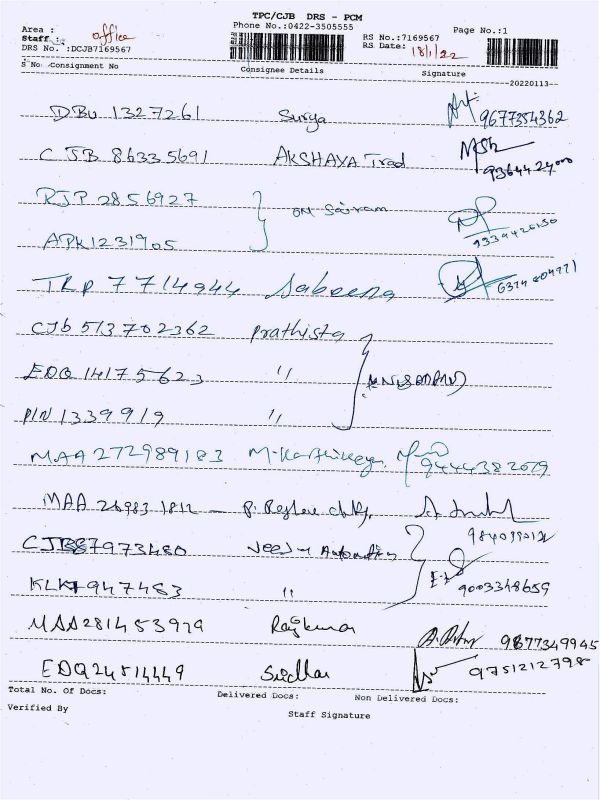 TPC/CJB DRS - PCM
Area : office Phone No.:0422-3505555 RS No.:7169567 Page No.:1
Staff : RS Date: 18/1/22
DRS No. :DCJB7169567
S No Consignment No Consignee Details Signature
20220113
DBU 1327261 Surya 9677354362
CJB 86335691 AKSHAYA Trad 9364424000
RJP 2856927 OM Sairam
APK1231905 9339426150
TRP 7714944 Sabeena
CJb 513702362 prathista
EDQ 14175623 "
PIN 1339919 "
MAA 272989183 M. Karthikeyan 9444382079
MAA 26983 1812
CJB87973480
KLK1947483 " 9003348659
MAA281453979 Rajkumar 9677349945
EDQ24514449 Sridhar 9751212798
Total No. Of Docs: Delivered Docs: Non Delivered Docs:
Verified By Staff Signature